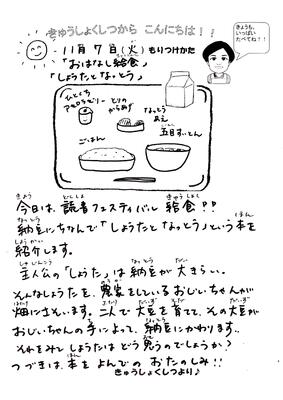 きゅうしょくしつから こんにちは！！
きょうも、
いっぱい
たべてね！！
11月 7日(火) もりつけかた
「おはなし給食」
「しょうたとなっとう」
ひとくち
アセロラゼリー
とりの
からあげ
なっとう
あえ
ごはん
五目すいとん
今日は、読書フェスティバル 給食！！
納豆にちなんで「しょうたとなっとう」という本を
紹介します。
主人公の「しょうた」は納豆が大きらい。
そんなしょうたを、農家をしているおじいちゃんが
畑にさそいます。二人で大豆を育てて、その大豆が
おじいちゃんの手によって、納豆にかわります。
それをみてしょうたはどう思うのでしょうか？
つづきは、本をよんでの おたのしみ！！
きゅうしょくしつより♪